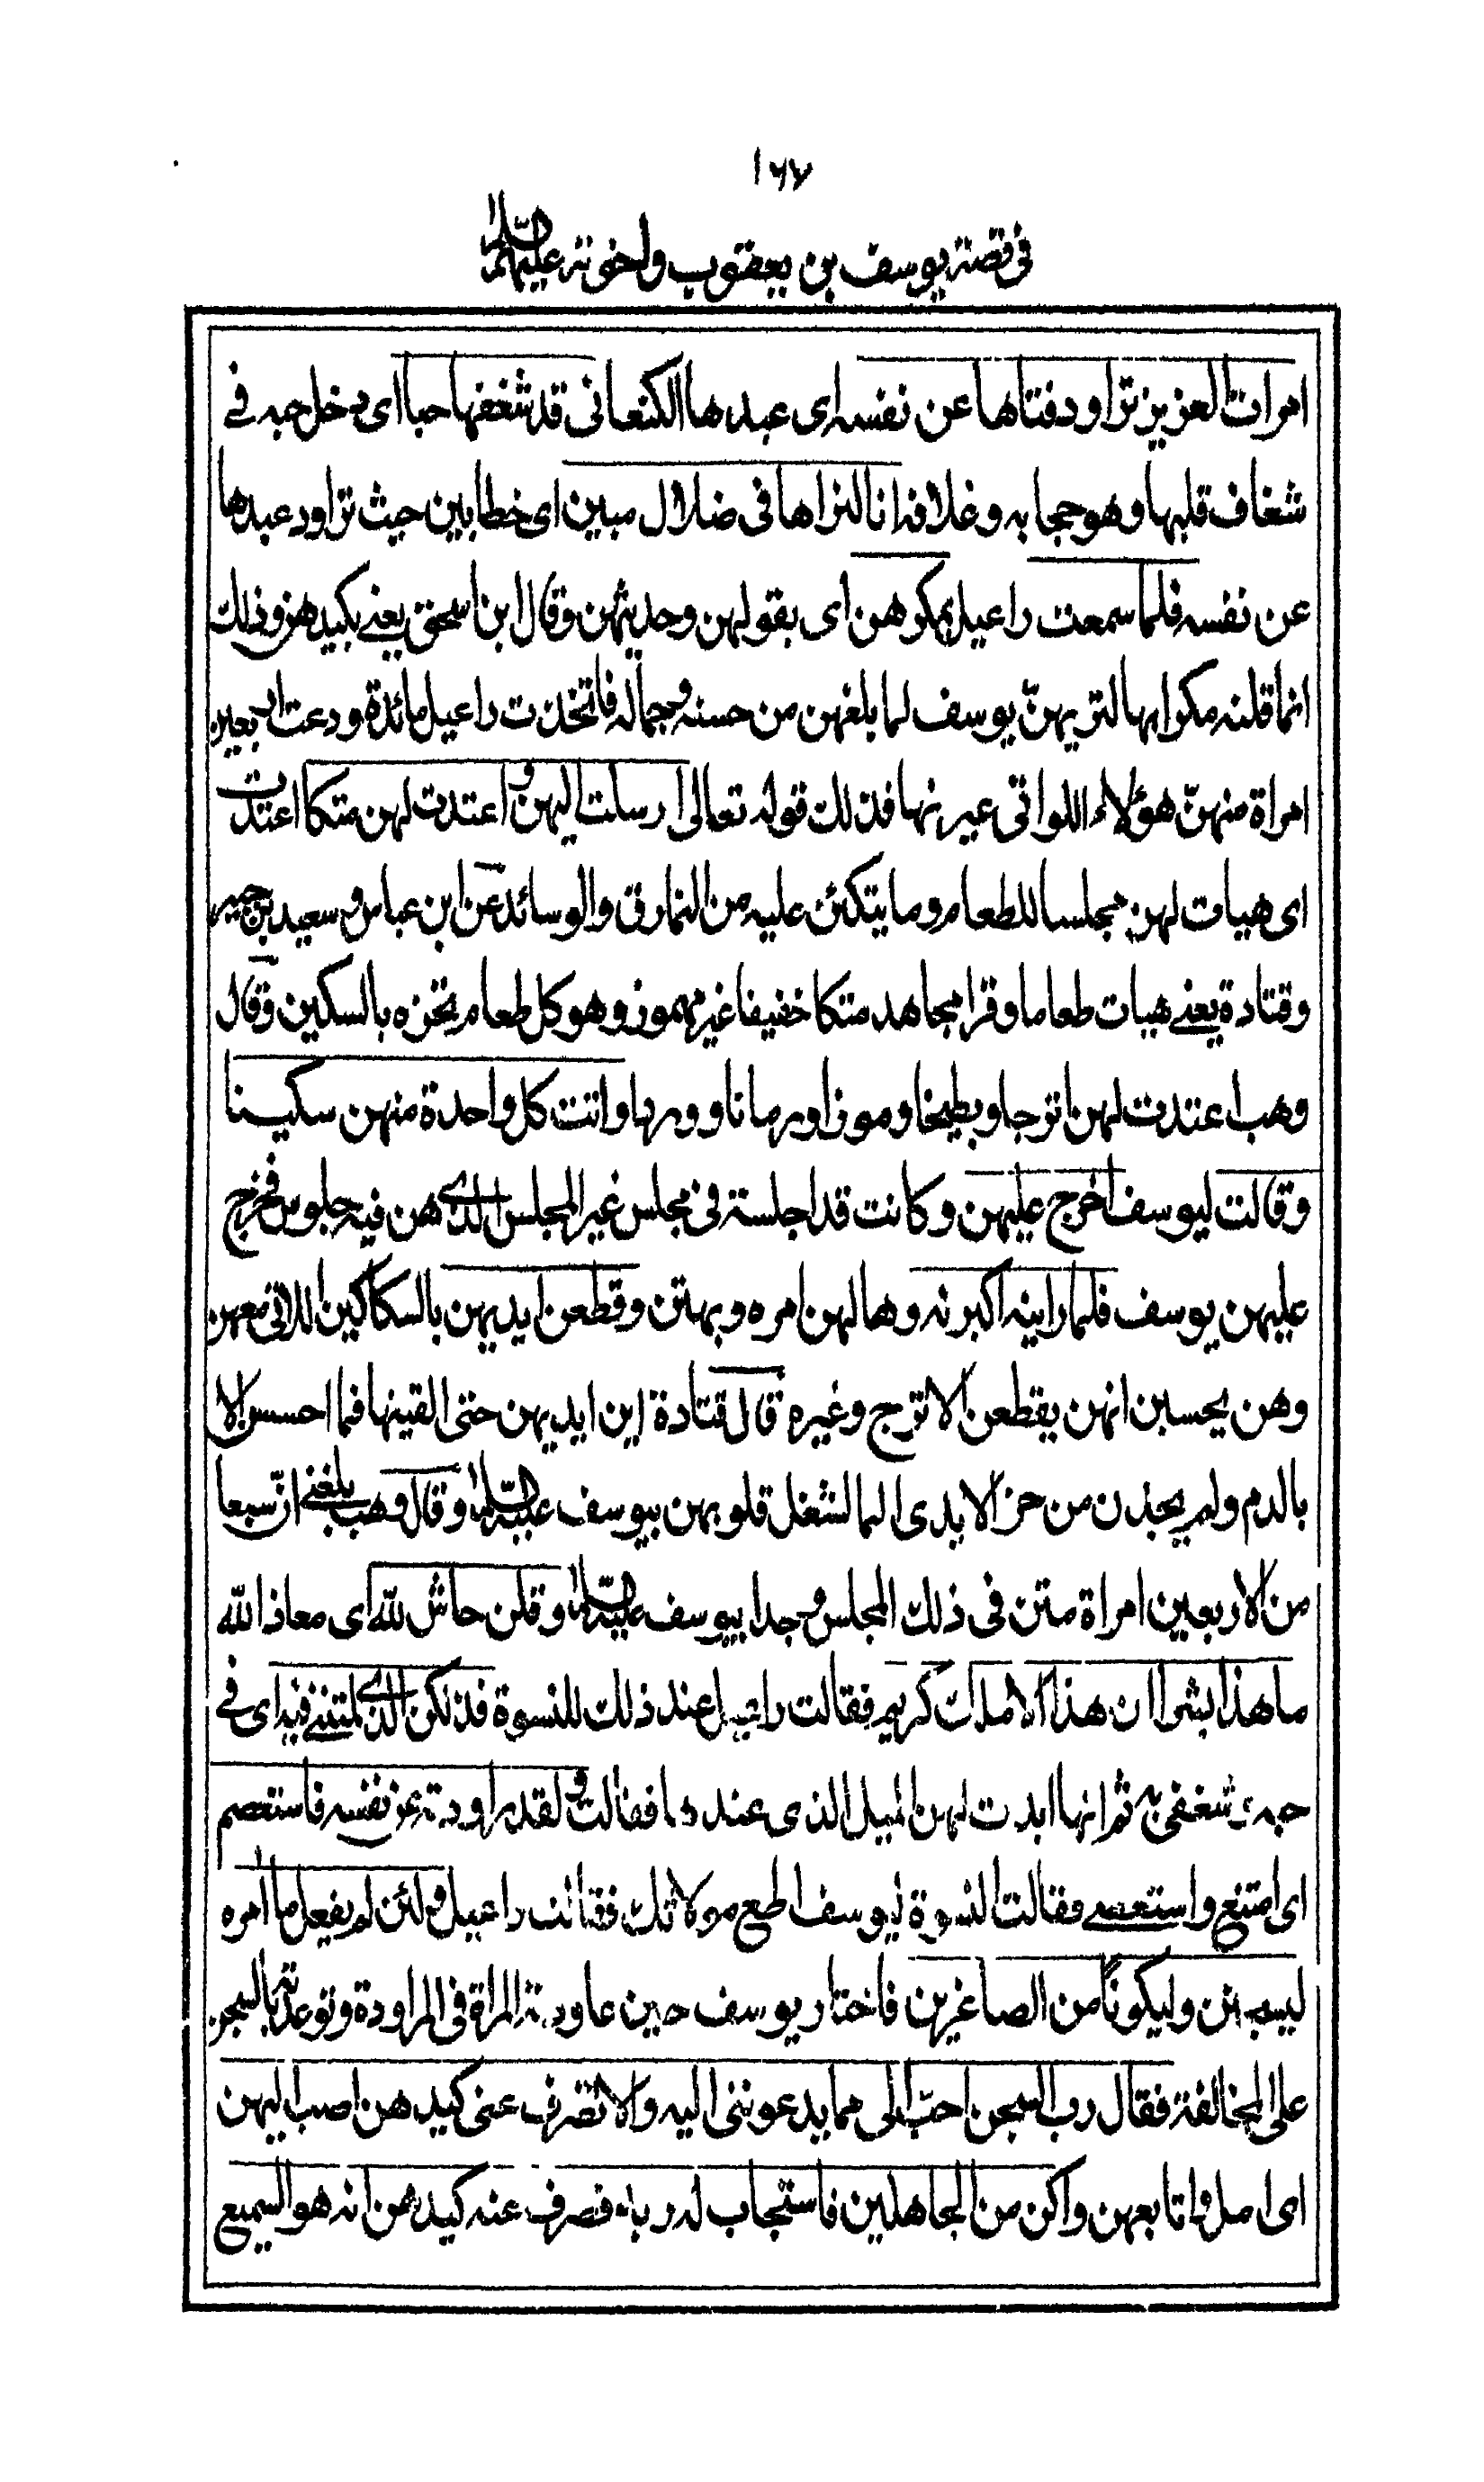 ١٦٧
في قصة يوسف بن يعقوب واخوته عليهم السلام
امرات العزيز تراود فتاها عن نفسه اى عبدها الكنعانى قد شغفها حبا اى دخل حبه فى
شغاف قلبها وهو حجابه وغلافه انا لنراها فى ضلال مبين اى خطا بين حيث تراود عبدها
عن نفسه فلما سمعت راعيل بمكرهن اى بقولهن وحديثهن وقال ابن اسحق يعنى بكيدهن وذلك
انما قلنه مكرا بها لتريهنّ يوسف لما بلغهن من حسنه وجماله فاتخذت راعيل مائدة ودعت اربعين
امراة منهنّ هؤلاء اللواتى عيرنها فذلك قوله تعالى ارسلت اليهن واعتدت لهن متكا اعتدت
اى هيات لهن مجلسا للطعام وما يتكئن عليه من النمارق والوسائد عن ابن عباس وسعيد بن جبير
وقتادة يعنى هيات طعاما وقرا مجاهد متكا خفيفا غير مهموز وهو كل طعام تحزه بالسكين وقال
وهب اعتدت لهن اترجا وبطيخا وموزا ورمانا ووردا واتت كل واحدة منهن سكينا
وقالت ليوسف اخرج عليهن وكانت قد اجلسته فى مجلس غير المجلس الذى هن فيه جلوس فخرج
عليهن يوسف فلما راينه اكبرنه وهالهن امره وبهتن وقطعن ايديهن بالسكاكين اللاتى معهن
وهن يحسبن انهن يقطعن الاترج وغيره قال قتادة ابن ايديهن حتى القينها فما احسسن الا
بالدم ولم يجذن من حز الايدى الما لشغل قلوبهن بيوسف عليه السلام وقال وهب بلغنى انّ سبعا
من الاربعين امراة متن فى ذلك المجلس وجدا بيوسف عليه السلام وقلن حاش لله اى معاذ الله
ما هذا بشرا ان هذا الا ملك كريم فقالت راعيل عند ذلك للنسوة فذلكن الذى لمتننى فيه اى فى
حبه وشغفى به ثم انها ابدت لهن الميل الذى عندها فقالت ولقد راودته عن نفسه فاستعصم
اى امتنع واستعصى فقالت النسوة ليوسف اطع مولاتك فقالت راعيل ولئن لم يفعل ما امره
ليسجنن وليكونًا من الصاغرين فاختار يوسف حين عاودته المراة فى المراودة وتوعدته بالسجن
على المخالفة فقال رب السجن احبّ الى مما يدعوننى اليه والا تصرف عنى كيدهن اصب اليهن
اى امل واتابعهن واكن من الجاهلين فاستجاب له ربه فصرف عنه كيدهن انه هو السميع